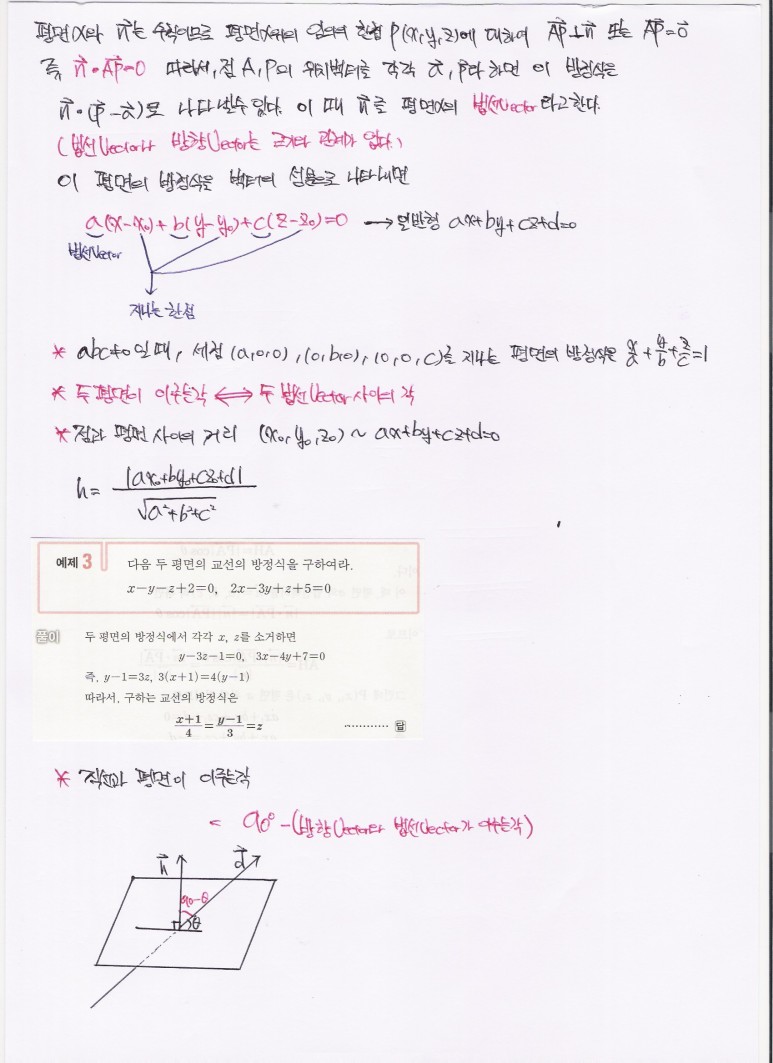 평면 α와 n⃗는 수직이므로 평면 α위의 임의의 한점 P(x, y, z)에 대하여 AP⃗⊥n⃗ 또는 AP⃗=0⃗
즉 n⃗•AP⃗=0 따라서, 점 A, P의 위치벡터를 각각 a⃗, p⃗라 하면 이 방정식은
n⃗•(p⃗-a⃗)로 나타낼수 있다. 이 때 n⃗를 평면α의 법선Vector라고한다.
(법선Vector나 방향Vector는 크기와 관계가 없다.)
이 평면의 방정식은 벡터의 성분으로 나타내면
a(x-x₀)+b(y-y₀)+c(z-z₀)=0 → 일반형 ax+by+cz+d=0
법선Vector
지나는 한점
* abc≠0일 때, 세점 (a,0,0), (0,b,0), (0,0,c)를 지나는 평면의 방정식은 x/a+y/b+z/c=1
* 두 평면이 이루는각 ⟺ 두 법선Vector 사이의 각
* 점과 평면 사이의 거리 (x₀, y₀, z₀) ~ ax+by+cz+d=0
h= |ax₀+by₀+cz₀+d| / √a²+b²+c²
예제 3 다음 두 평면의 교선의 방정식을 구하여라.
x-y-z+2=0, 2x-3y+z+5=0
풀이 두 평면의 방정식에서 각각 x, z를 소거하면
y-3z-1=0, 3x-4y+7=0
즉, y-1=3z, 3(x+1)=4(y-1)
따라서, 구하는 교선의 방정식은
x+1/4=y-1/3=z ………… 답
* 직선과 평면이 이루는각
= 90°-(방향Vector와 법선Vector가 이루는각)
n⃗ d⃗
90-θ
θ